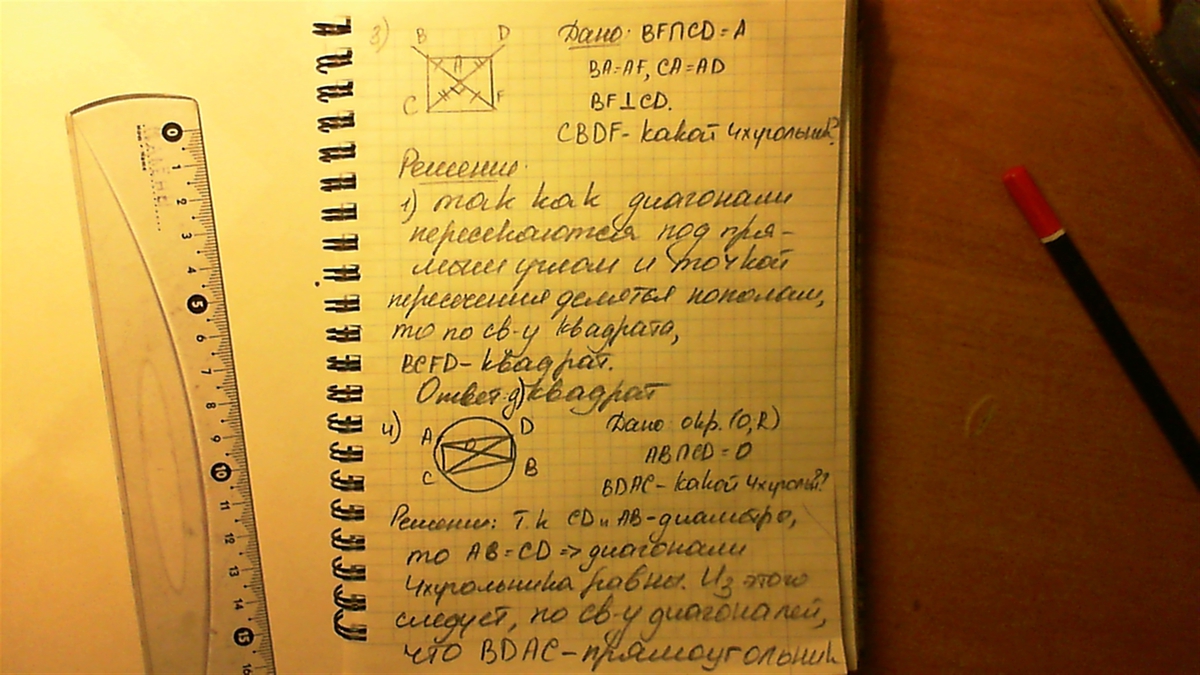 3)
B D
A
C F
Дано: BF∩CD=A
BA=AF, CA=AD
BF⊥CD.
CBDF- какой 4хугольник?
Решение.
1) так как диагонали
пересекаются под пря-
мым углом и точкой
пересечения делятся пополам,
то по св-у квадрата,
BCFD- квадрат.
Ответ: д) квадрат
4)
A D
O
C B
Дано окр. (O,R)
AB∩CD=O
BDAC- какой 4хугольн??
Решение: Т.к CD и AB-диаметры,
то AB=CD => диагонали
4хугольника равны. Из этого
следует, по св-у диагоналей,
что BDAC-прямоугольник
0
1
2
3
4
5
6
7
8
9
10
11
12
13
14
15
16